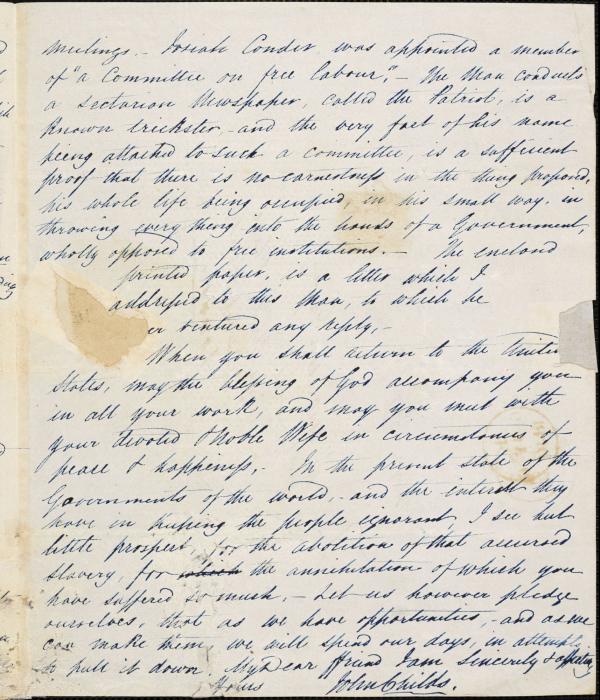 meetings. – Josiah Conder, was appointed a member
of "a Committee on free labour," – The Man conducts
a Sectarian Newspaper, called the Patriot, is a
known trickster, – and the very fact of his name
being attached to such a committee, is a sufficient
proof that there is no earnestness in the thing proposed.
his whole life being occupied, in his small way, in
throwing every thing into the hands of a Government,
wholly opposed to free institutions. – The enclosed
printed paper, is a letter which I
addressed to this Man, to which he
er ventured any reply, –
When you shall return to the United
States, may the blessing of God accompany you
in all your work, and may you meet with
your devoted & Noble Wife in circumstances of
peace & happiness, – In the present state of the
Governments of the world, – and the interest they
have in keeping the people ignorant, I see but
little prospect, for the abolition of that accursed
slavery, for which the annihilation of which you
have suffered so much, – Let us however pledge
ourselves, that as we have opportunities, – and as we
can make them, we will spend our days, in attempts
to pull it down. My Dear ffriend I am Sincerely &
Yours John Childs.